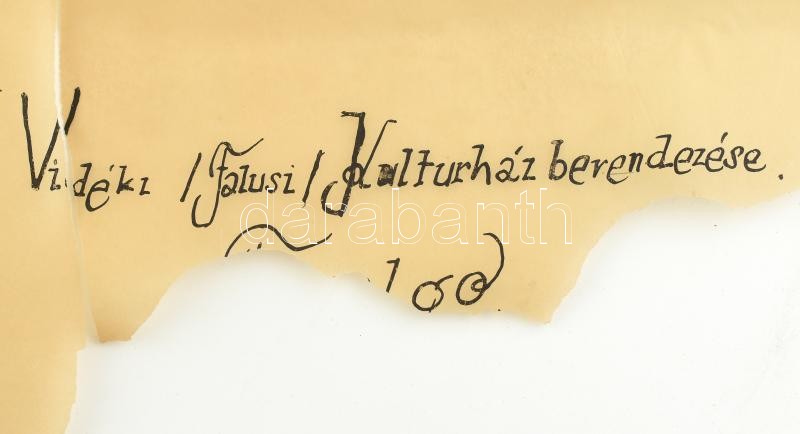 Vidéki /falusi/ Kulturház berendezése.
darabanth